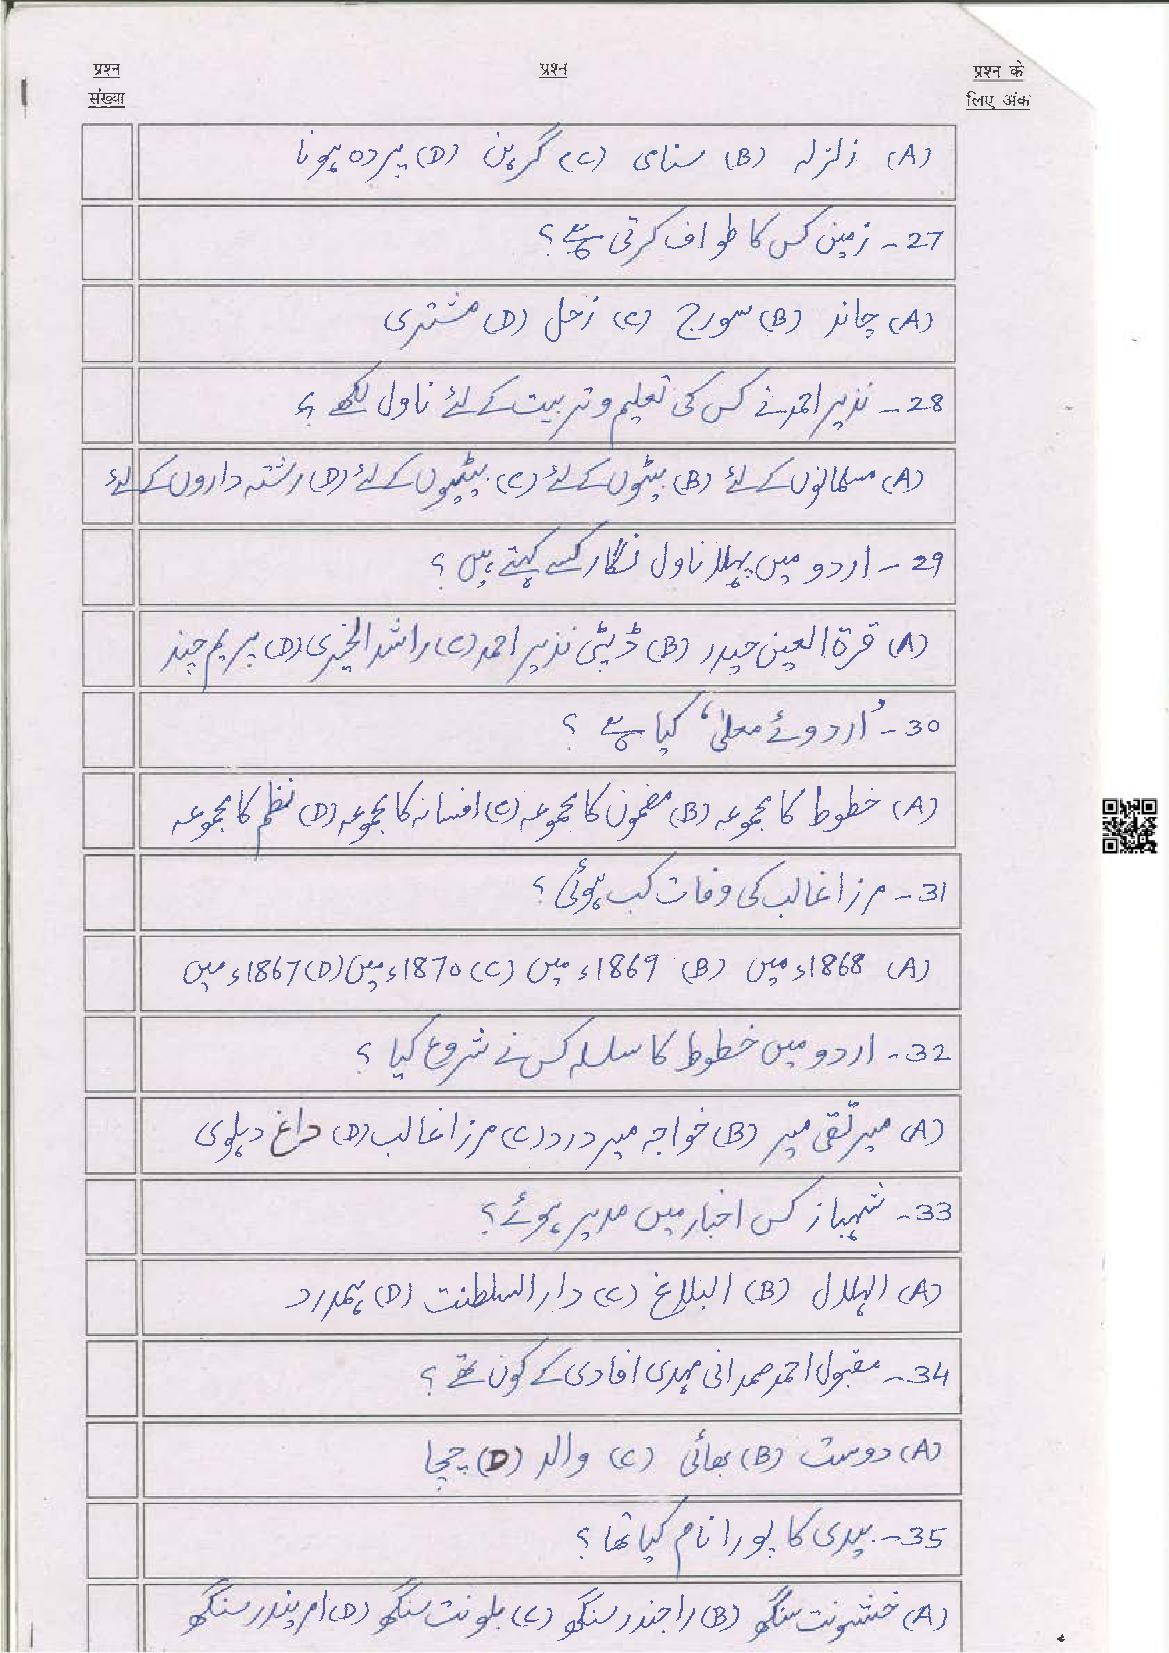 प्रश्न संख्या
प्रश्न
प्रश्न के लिए अंक
(A) زلزلہ (B) سنامی (C) گرہن (D) پردہ ہونا
27- زمین کس کا طواف کرتی ہے؟
(A) چاند (B) سورج (C) زحل (D) مشتری
28- نذیر احمد نے کس کی تعلیم و تربیت کے لئے ناول لکھے ؟
(A) مسلمانوں کے لئے (B) بیٹوں کے لئے (C) بیٹیوں کے لئے (D) رشتہ داروں کے لئے
29- اردو میں پہلا ناول نگار کسے کہتے ہیں ؟
(A) قرۃ العین حیدر (B) ڈپٹی نذیر احمد (C) راشد الخیری (D) پریم چند
30- ’اردوئے معلیٰ‘ کیا ہے ؟
(A) خطوط کا مجموعہ (B) مضمون کا مجموعہ (C) افسانہ کا مجموعہ (D) نظم کا مجموعہ
31- مرزا غالب کی وفات کب ہوئی ؟
(A) 1868ء میں (B) 1869ء میں (C) 1870ء میں (D) 1867ء میں
32- اردو میں خطوط کا سلسلہ کس نے شروع کیا ؟
(A) میر تقی میر (B) خواجہ میر درد (C) مرزا غالب (D) داغ دہلوی
33- شہباز کس اخبار میں مدیر ہوئے ؟
(A) الہلال (B) البلاغ (C) دار السلطنت (D) ہمدرد
34- مقبول احمد صمدانی مہدی افادی کے کون تھے ؟
(A) دوست (B) بھائی (C) والد (D) چچا
35- بیدی کا پورا نام کیا تھا ؟
(A) خشونت سنگھ (B) راجندر سنگھ (C) بلونت سنگھ (D) امریندر سنگھ